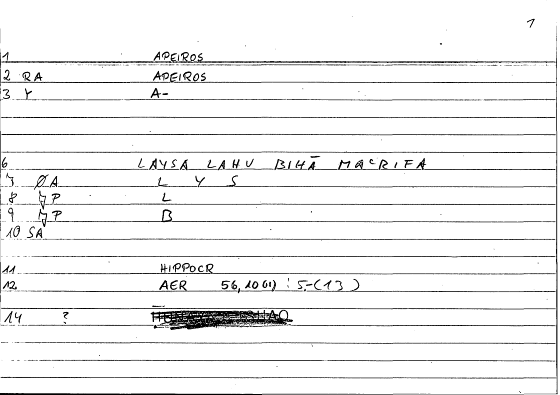 1
1 APEIROS
2 RA APEIROS
3 Y A-
6 LAYSA LAHU BIHĀ MACRIFA
7 ØA L Y S
8 P L
9 P B
10 SA
11 HIPPOCR
12 AER 56, 10 (13)
14 ?